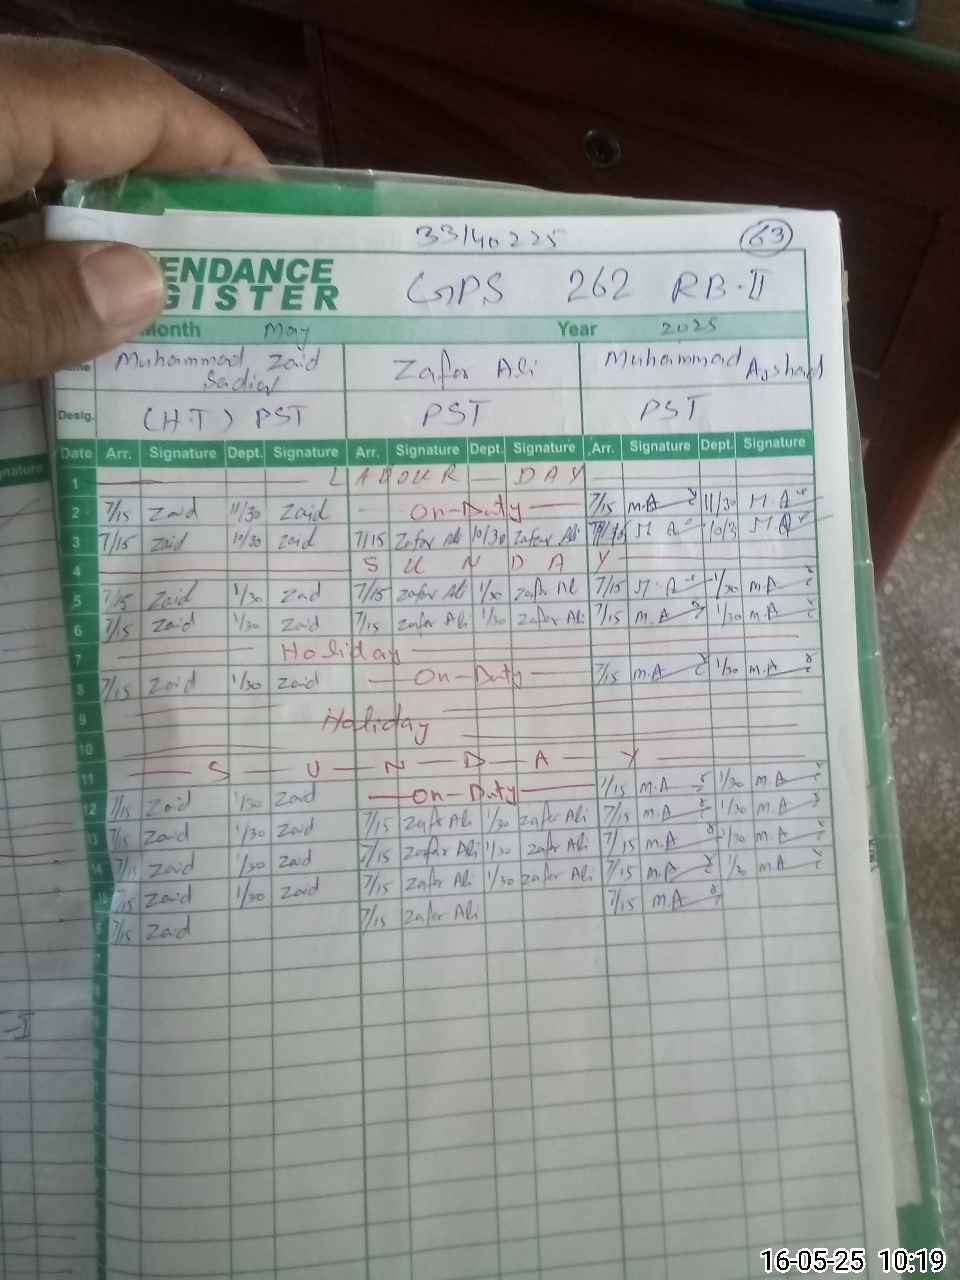 33140225 63
ENDANCE
GISTER
GPS 262 RB-II
Month May Year 2025
Muhammad Zaid Sadiq Zafar Ali Muhammad Arshad
Desig. (H.T) PST PST PST
Date Arr. Signature Dept. Signature Arr. Signature Dept. Signature Arr. Signature Dept. Signature
1 LABOUR DAY
2 7/15 Zaid 11/30 Zaid On-Duty 7/15 M.A 11/30 M.A
3 7/15 Zaid 10/30 Zaid 7/15 Zafar Ali 10/30 Zafar Ali M.A 10/3 M.A
4 SUNDAY
5 7/15 Zaid 1/30 Zaid 7/15 Zafar Ali 1/30 Zafar Ali 7/15 M.A 1/30 M.A
6 7/15 Zaid 1/30 Zaid 7/15 Zafar Ali 1/30 Zafar Ali 7/15 M.A 1/30 M.A
7 Holiday
8 7/15 Zaid 1/30 Zaid On-Duty 7/15 M.A 1/30 M.A
9 Holiday
10
11 SUNDAY
12 7/15 Zaid 1/30 Zaid On-Duty 7/15 M.A 1/30 M.A
13 7/15 Zaid 1/30 Zaid 7/15 Zafar Ali 1/30 Zafar Ali 7/15 M.A 1/30 M.A
14 7/15 Zaid 1/30 Zaid 7/15 Zafar Ali 1/30 Zafar Ali 7/15 M.A 1/30 M.A
7/15 Zaid 1/30 Zaid 7/15 Zafar Ali 1/30 Zafar Ali 7/15 M.A 1/30 M.A
7/15 Zaid 7/15 Zafar Ali 7/15 M.A
16-05-25 10:19